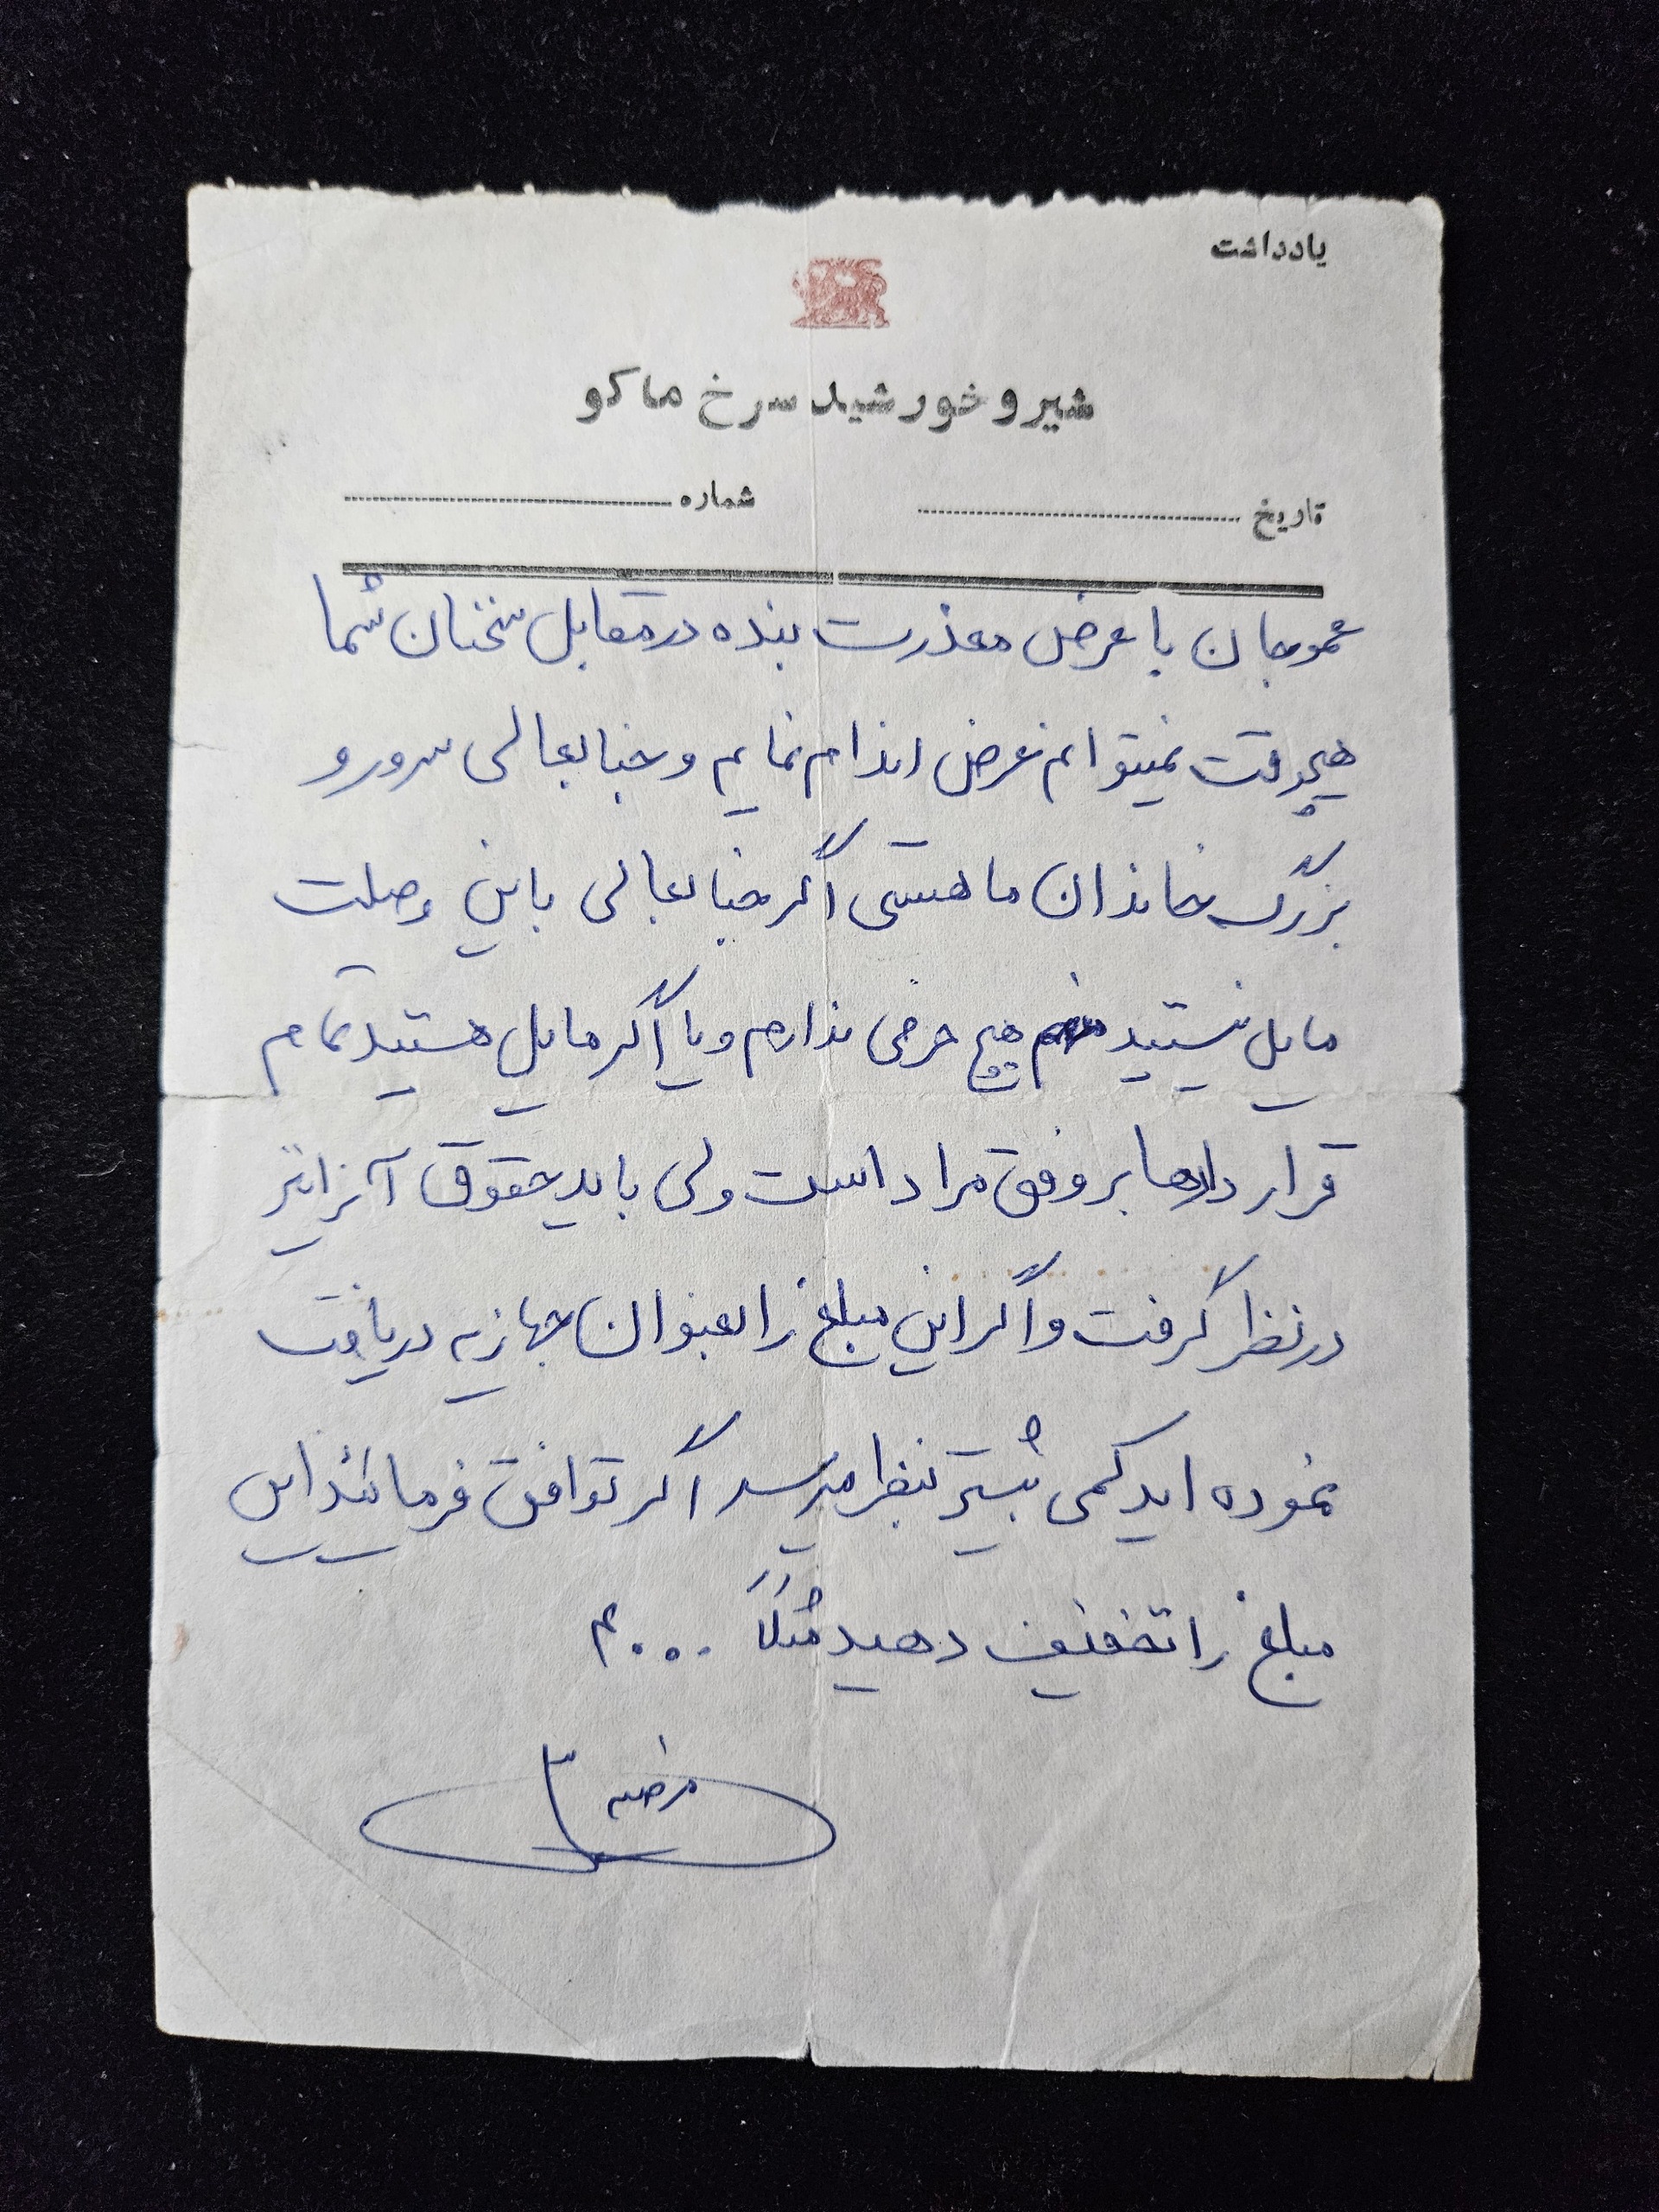 یادداشت
شیر و خورشید سرخ ماکو
تاریخ ............ شماره ............
عموجان با عرض معذرت بنده در مقابل سخنان شما
هیچوقت نمیتوانم عرض اندام نمایم و جنابعالی سرور و
بزرگ خاندان ما هستی اگر جنابعالی باین وصلت
مایل نیستید منهم هیچ حرفی ندارم و یا اگر مایل هستید تمام
قراردادها بر وفق مراد است ولی باید حقوق آنرا نیز
در نظر گرفت و اگر این مبلغ را بعنوان جهازیه دریافت
نموده اید کمی بیشتر بنظر میرسد اگر توافق فرمائید این
مبلغ را تخفیف دهید مثلاً ۴۰۰۰